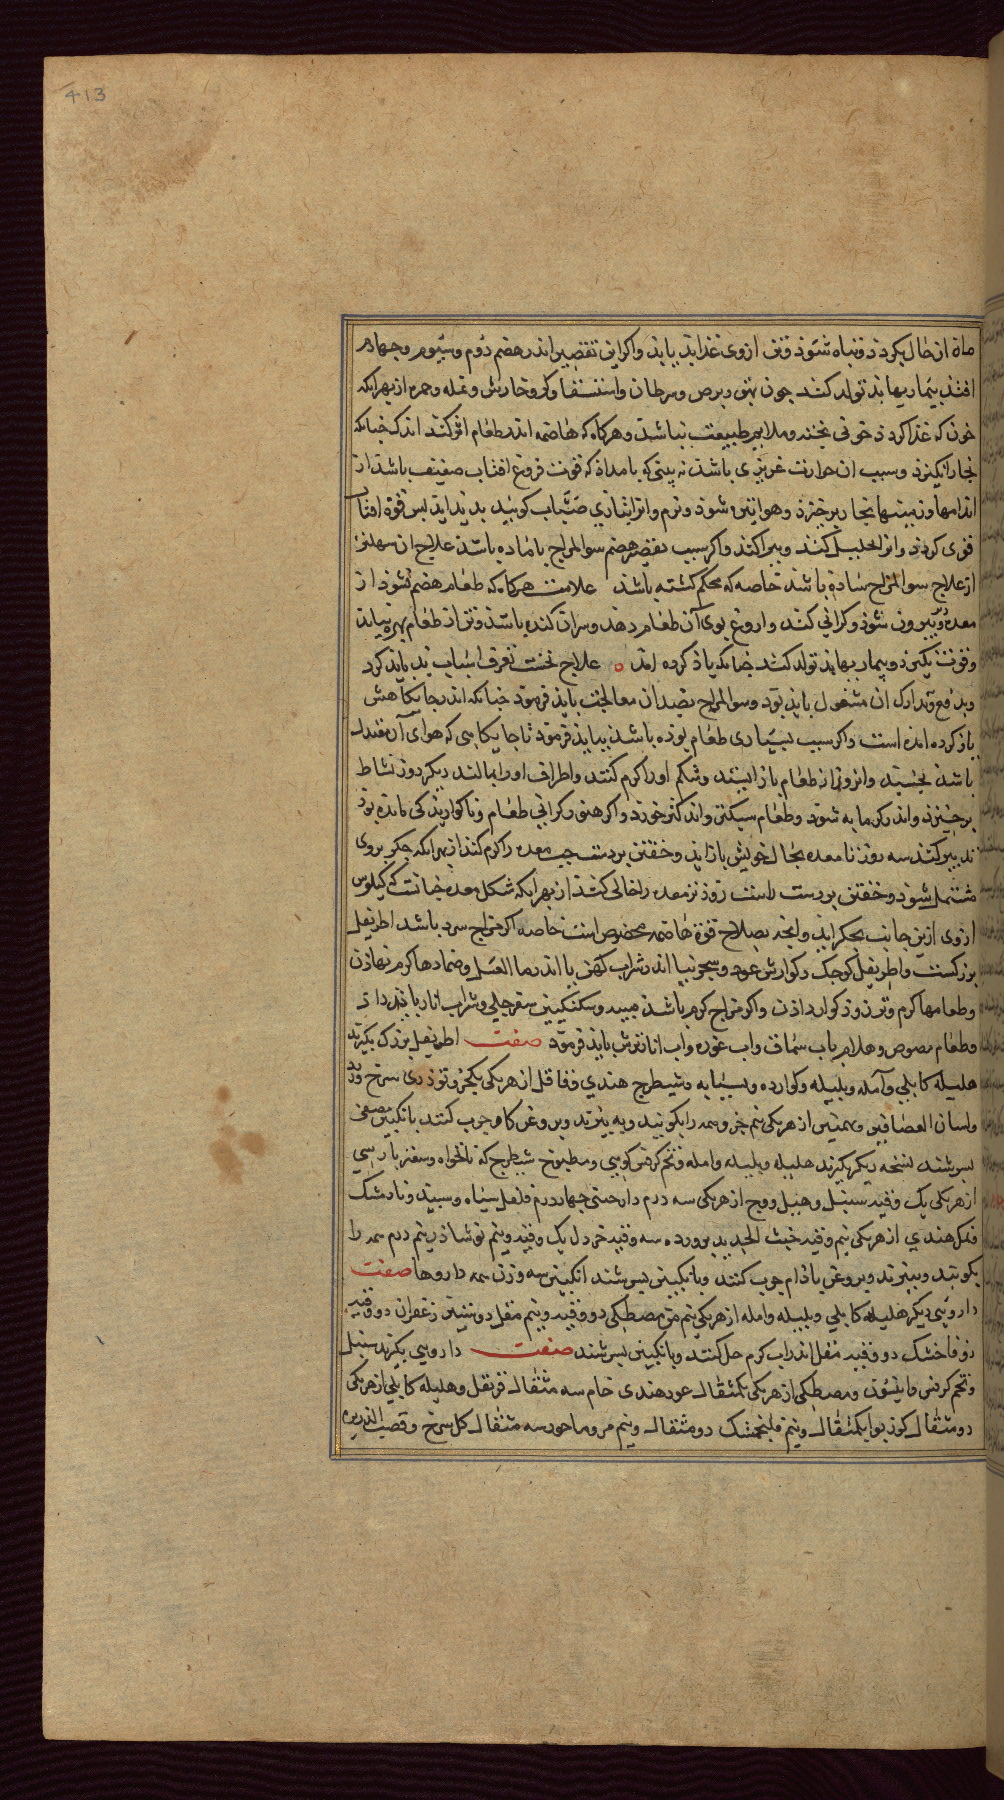 413
ماده از حال بکردد و تباه شوذ و تن ازوی غذا بد یابد واکر این تقصیر اندر هضم دوم وسیوم وچهارم
افتد بیماریها بد تولد کند چون بهق وبرص وسرطان واستسقا وکر وخارش ونمله وحمره از بهر انکه
خون که غذا کردد خونی پخته وملایم طبیعت نباشد وهرکاه که هاضمه اندر طعام اثر کند اندک چنانکه
بخار انکیزد وسبب آن حرارت غریزی باشد نه بینی که بامداد که قوت فروغ افتاب ضعیف باشد از
اندامها وزمینها بخار برخیزد وهوا تیره شود ونرم وانرا بتازی ضباب کویند بدید آید پس قوة افتاب
قوی کردد وانرا تحلیل کند وپراکند واکر سبب تقصیر هضم سو المزاج با ماده باشد علاج آن سهلتر
از علاج سو المزاج ساده باشد خاصه که محکم کشته باشد علامت هرکاه که طعام هضم نشود از
معده دیر بیرون شود وکرانی کند واروغ بوی آن طعام دهد وبراز کنده باشد وتن از طعام بهره نیابد
وقوت نکیرد وبیماریها بد تولد کند چنانکه یاذ کرده امد علاج نخست تعرف اسباب بد باید کرد
وبدفع وتدارک آن مشغول باید بود وسو المزاج بضد آن معالجت باید فرمود چنانکه اندر جایکاهش
یاذ کرده امده است واکر سبب بسیاری طعام بوده باشد بباید فرمود تا جایکاهی که هوای آن معتدل
باشد بخسپد وان روز از طعام باز ایستد وشکم اورا کرم کنند واطراف اورا بمالند دیکر روز نشاط
برخیزد واندر کرمابه شود وطعام سبکتر واندکتر خورد واکر هنوز کرانی طعام وناکواریدکی مانده بود
تدبیر کند سه روز تا معده بحال خویش باز آید وخفتن بر دست چپ معده را کرم کند از بهر انکه جکر بر وی
مشتمل شود وخفتن بر دست راست زودتر معده را خالی کند از بهر انکه شکل معده چنانست که کیلوس
ازوی ازین جانب بجکر آید وانچه بصلاح قوة هاضمه مخصوص است خاصه اکر مزاج سرد باشد اطریفل
بزرکست واطریفل کوچک وکوارش عود وسجزنیا اندر شراب کهن یا اندر ما العسل وضمادها کرم نهادن
وطعامها کرم وتر وزود کوار دادن واکر مزاج کرم باشد میبه وسکنکبین سفرجلی وشراب انار باید داد
وطعام مصوص وهلام باب سماق واب غوره واب انار ترش باید فرمود صفت اطریفل بزرک بکیرند
هلیله کابلی وآمله وبلیله وکوارده وبسباسه وشیطرج هندی وفاقل از هر یکی یکجزو توذری سرخ وزرد
ولسان العصافیر وبهمنین از هر یکی نیم جزو همه را بکوبند وبه بیزند وبروغن کاو چرب کنند بانکبین مصفی
بسرشند نسخه دیکر بکیرند هلیله وبلیله وامله وتخم کرفس کوهی ومطبوخ شیطرج که نانخواه وسعتر پارسی
از هر یکی یک وقیه سنبل وهیل ووج از هر یکی سه درم دارچینی چهار درم فلفل سیاه وسپید ونارمشک
ونمک هندی از هر یکی نیم وقیه خبث الحدید پرورده سه وقیه خردل یک وقیه ونیم نوشاذر نیم درم همه را
بکوبند وببیزند وبروغن باذام چرب کنند وبانکبین بسرشند انکبین سه وزن همه داروها صفت
داروئی دیکر هلیله کابلی وبلیله وامله از هر یکی نیم من مصطکی دو وقیه ونیم مقل دو ستیر زعفران دو وقیه
زوفا خشک دو وقیه مقل اندر اب کرم حل کنند وبانکبین بسرشند صفت داروئی بکیرند سنبل
وتخم کرفس وانیسون ومصطکی از هر یکی یکمثقال عود هندی خام سه مثقال قرنفل وهلیله کابلی از هر یکی
دو مثقال کوز بوا یکمثقال ونیم فلنجمشک دو مثقال ونیم مرو ماحوز سه مثقال کل سرخ وقصب الذریره